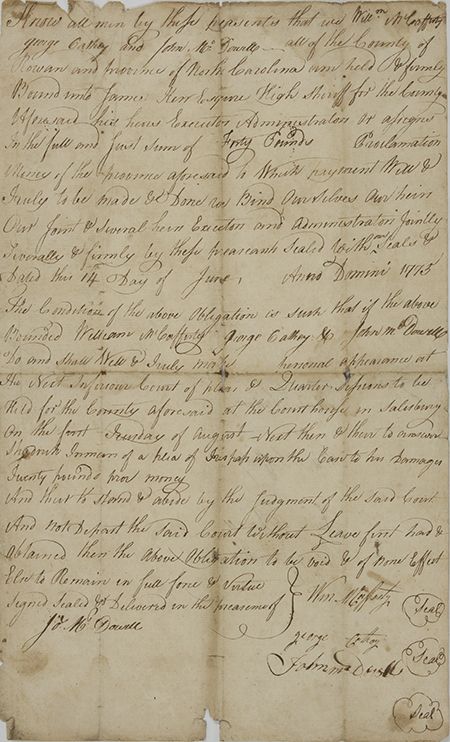 Know all men by these presents that we Willm McCafferty
george Cathey and John Mc Dowell all of the County of
Rowan and province of North Carolina are held & firmly
Bound unto James Kerr Esquire High Sheriff for the County
Aforesaid his heirs Executor Administrators or assignes
In the full and Just sum of Forty Pounds Proclamation
Money of the province aforesaid to Which payment Well &
Truly to be made & Done we Bind Our selves Our heirs
Our Joint & several heirs Executors and Administrators Jointly
Severally & firmly by these presents Sealed With our Seals &
Dated this 14th Day of June, Anno Domini 1775
The Condition of the above Obligation is such that if the above
Bounded William McCafferty george Cathey & John mc Dowell
Do and shall Well & Truly make personal appearance at
the Next Inferiour Court of pleas & Quarter Sessions to be
Held for the County aforesaid at the Courthouse in Salesbury
On the first Tuesday of August Next then & there to answer
Shedrick Inman of a plea of Trespass upon the Case to his Damages
Twenty pounds proc money
And that to Stand & abide by the Judgment of the Said Court
And not Depart the Said Court Without Leave first had &
obtained then the above Obligation to be void & of None Effect
Else to Remain in full force & Virtue
Signed Sealed & Delivered in the presence of
Wm McCafferty Seal
Jo Mc Dowell
george Cathey Seal
John mc Dowell
Seal